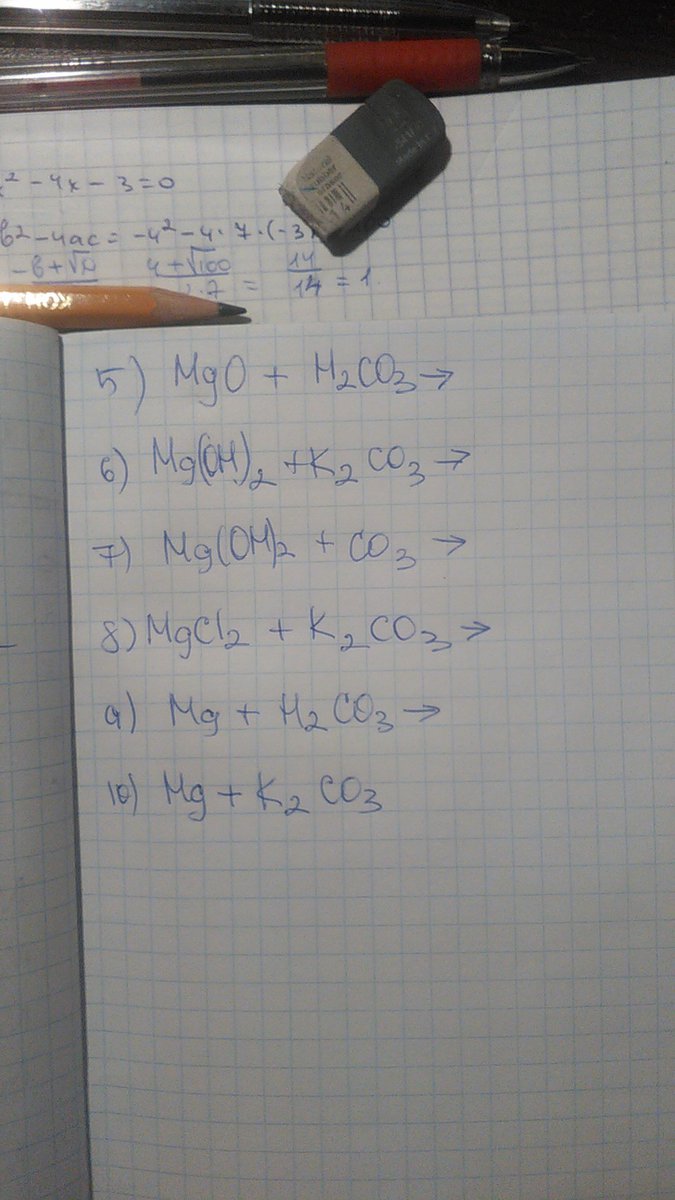 x² - 4x - 3 = 0
b² - 4ac = -4² - 4 · 7 · (-3)
-b + √D 4 + √100 14
· 7 = 14 = 1.
5) MgO + H₂CO₃ →
6) Mg(OH)₂ + K₂CO₃ →
7) Mg(OH)₂ + CO₃ →
8) MgCl₂ + K₂CO₃ →
9) Mg + H₂CO₃ →
10) Mg + K₂CO₃